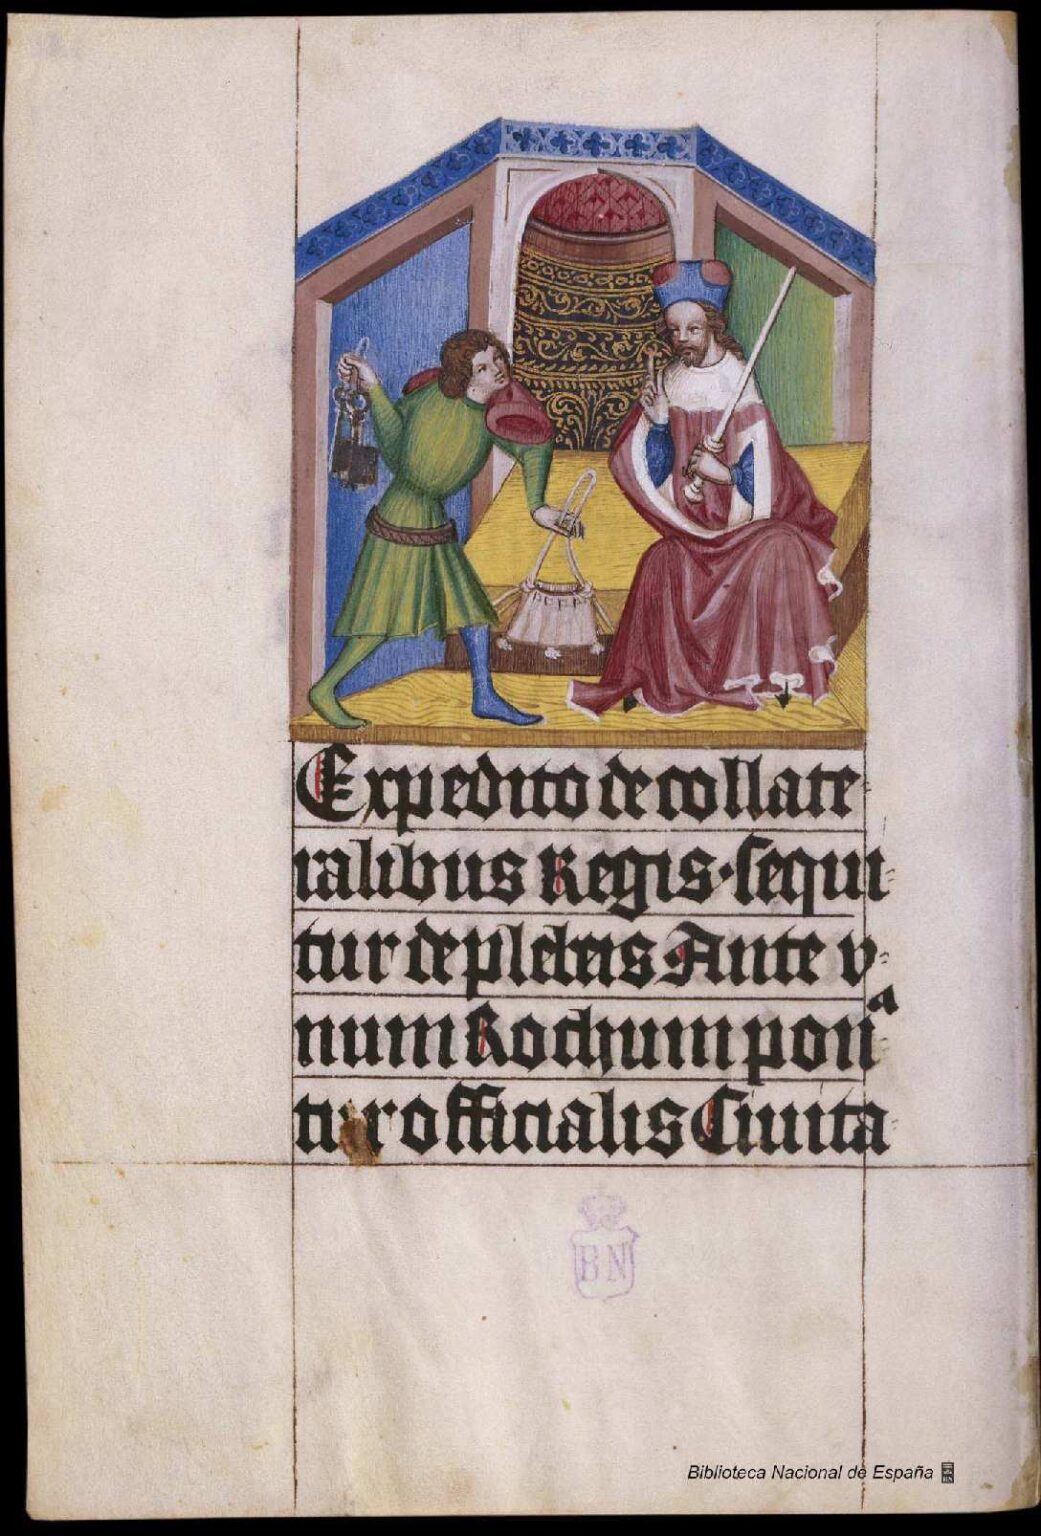 Expedito de collate-
ralibus Regis· sequi-
tur de plebeis Ante v-
num Rochum poni^a
tur officialis Ciuita-
BN
Biblioteca Nacional de España